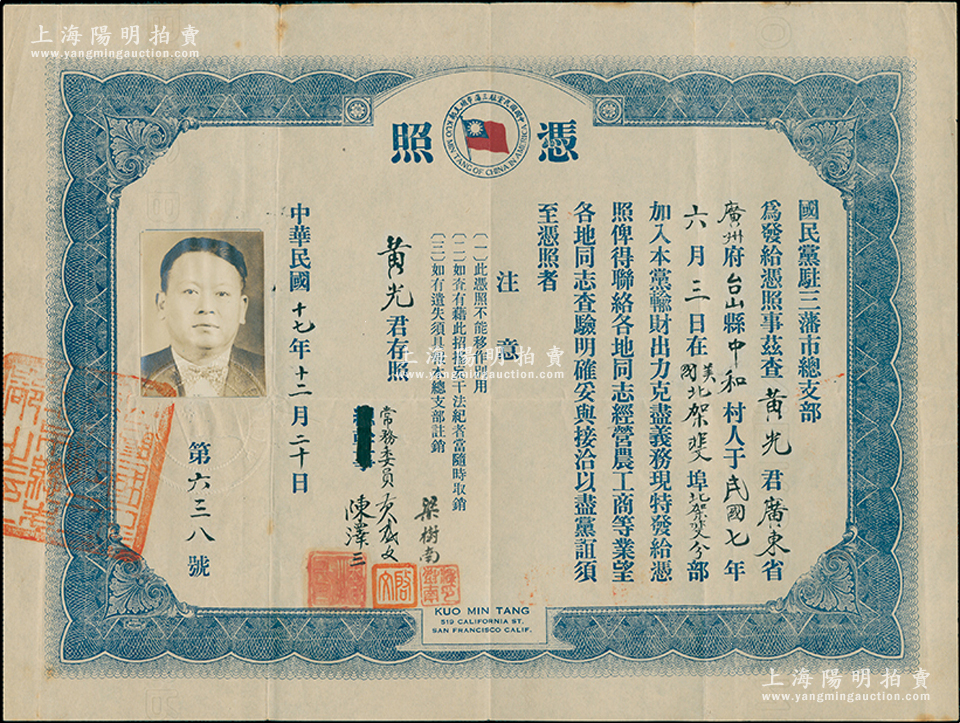 上海陽明拍賣
www.yangmingauction.com
憑照
KUO MIN TANG OF CHINA IN AMERICA
國民黨駐三藩市總支部
為發給憑照事茲查黃光君廣東省
廣州府台山縣中和村人于民國七年
六月三日在美國北架斐埠北架斐分部
加入本黨輸財出力克盡義務現特發給憑
照俾得聯絡各地同志經營農工商等業望
各地同志查驗明確妥與接洽以盡黨誼須
至憑照者
注意
(一)此憑照不能移作別用
(二)如查有藉此招搖干法紀者當隨時取銷
(三)如有遺失須具總支部註銷
黃光君存照
常務委員
梁樹南
陳澤三
中華民國十七年十二月二十日
第六三八號
KUO MIN TANG
519 CALIFORNIA ST.
SAN FRANCISCO CALIF.
上海陽明拍賣
www.yangmingauction.com
上海陽明拍賣
www.yangmingauction.com